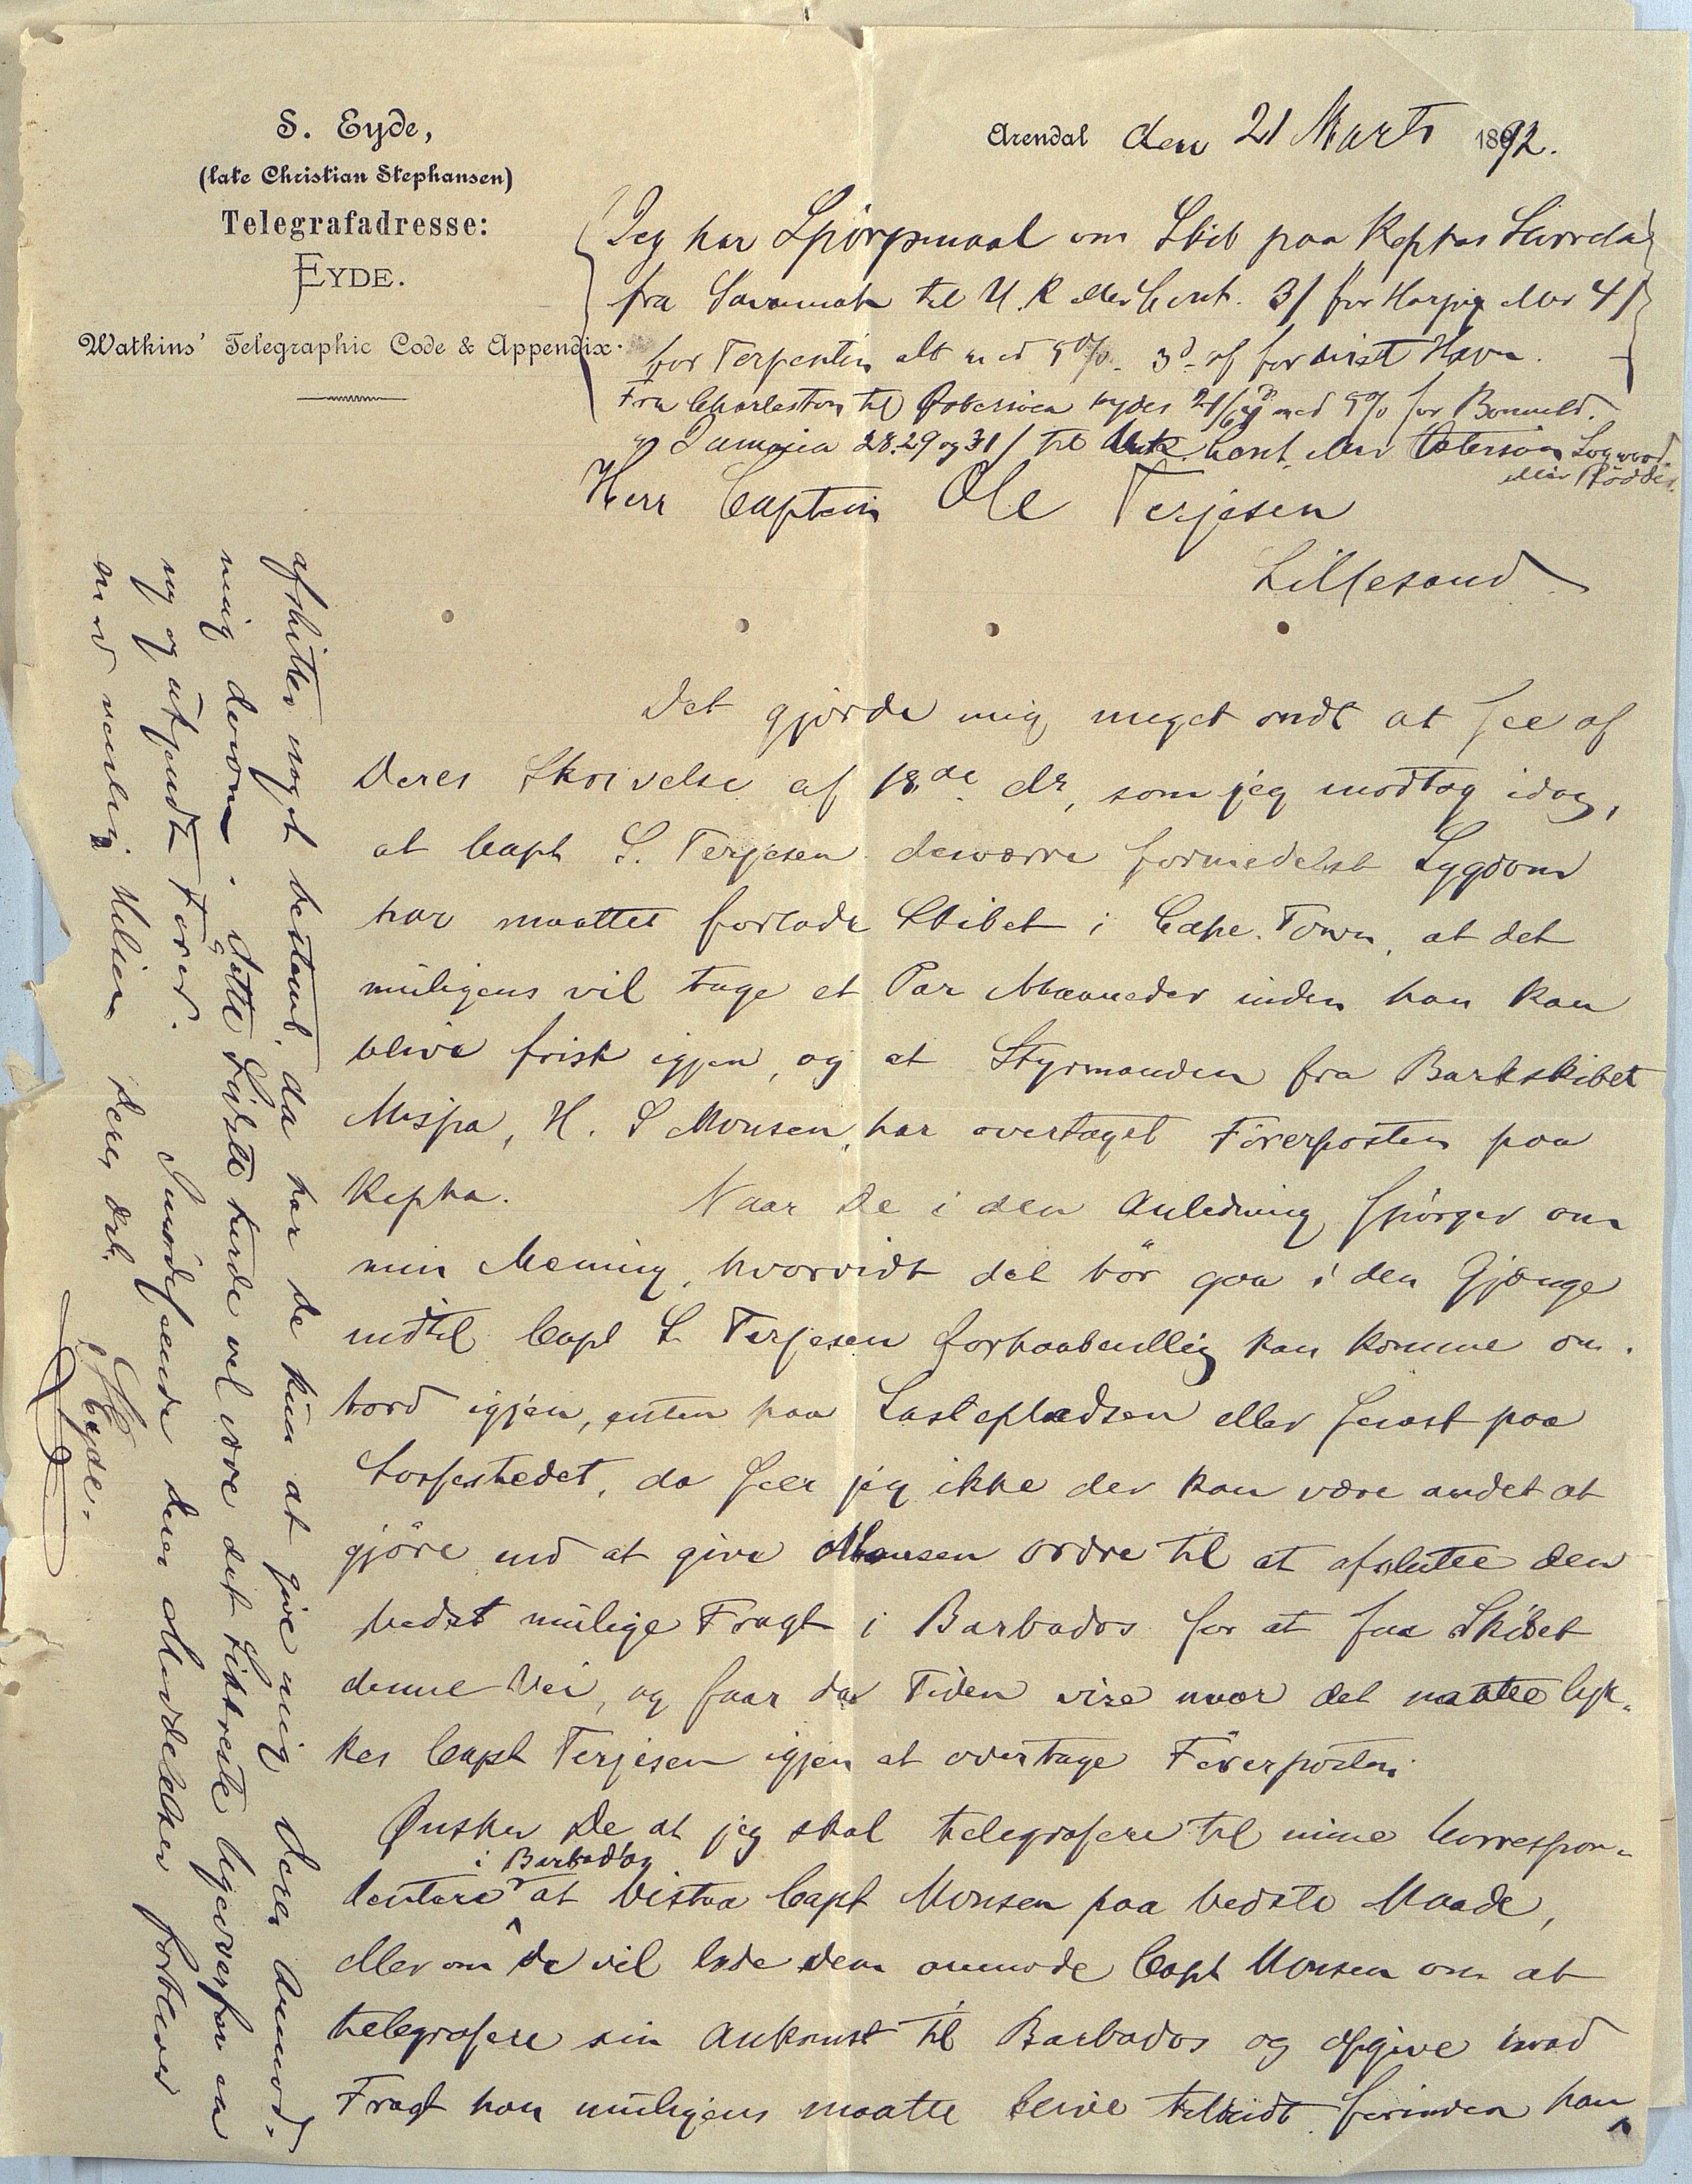 S. Eyde,
(late Christian Stephansen)
Telegrafadresse:
EYDE.
Watkins' Telegraphic Code & Appendix.
Arendal den 21 Marts 1892.
Jeg har Spörgsmaal om Skib paa Kephas Störrelse
fra Savannah til U.K eller Cont. 3/ for Harpix eller 4/
for Terpentin alt med 5% 3d af for direct Havn.
Fra Charleston til Østersöen bydes med 5% for Bomuld.
Jamaica 28. 29 og 31/ til Cont. eller Östersöen Logwood
eller Rödder.
Herr Captein Ole Terjesen
Lillesand
Det gjorde mig meget ondt at see af
Deres Skrivelse af 18de ds, som jeg modtog idag,
at Capt S. Terjesen desværre formedelst Sygdom
har maattet forlade Skibet i Cape Town, at det
muligens vil tage et Par Maaneder inden han kan
blive frisk igjen, og at Styrmanden fra Barkskibet
Mispa, H. S Monsen, har overtaget Förerposten paa
Kepha. Naar De i den Anledning spörger om
min Mening, hvorvidt det bör gaa i den Gjænge
indtil Capt S. Terjesen forhaabentlig kan komme om-
bord igjen, enten paa Lastepladsen eller senest paa
Lossestedet, da seer jeg ikke der kan være andet at
gjöre end at give Monsen Ordre til at afslutte den
bedst mulige Fragt i Barbados for at faa Skibet
denne Vei, og faar da Tiden vise naar det maatte lyk-
kes Capt Terjesen igjen at overtage Förerposten.
Ønsker De at jeg skal telegrafere til mine Correspon-
i Barbados
denter at bistaa Capt Monsen paa bedste Maade,
eller om De vil lade dem anmode Capt Monsen om at
telegrafere sin Ankomst til Barbados og opgive hvad
Fragt han muligens maatte blive tilbudt forinden han
afslutter noget bestemt, da har De kun at give mig Deres Anmod-
ning derom. Dette sidste turde vel være det sikkreste ligeoverfor en
ny og ukjendt Förer. Imödeseende Deres Meddelelser forbliver
med venlig Hilsen Deres Erb.
S Eyde.